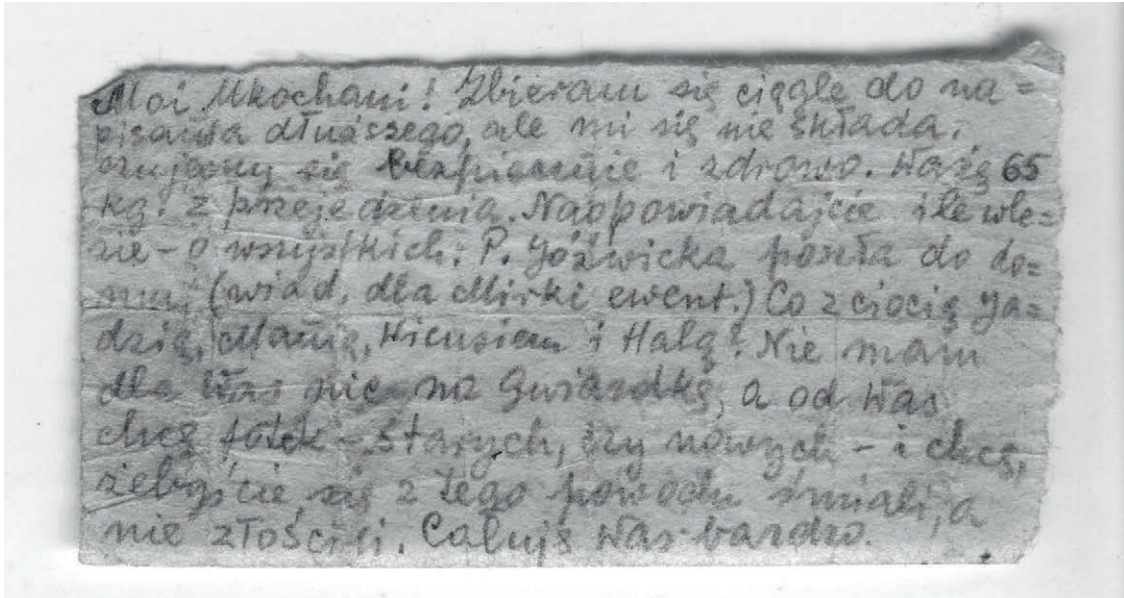 Moi Ukochani! Zbieram się ciągle do na=
pisania dłuższego, ale mi się nie składa.
czujemy się bezpiecznie i zdrowo. Ważę 65
kg! z przejedzenia. Naopowiadajcie ile wle=
zie - o wszystkich. P. Jóźwicka poszła do do=
mu. (wiad. dla Mirki ewent.) Co z ciocią Ja=
dzią, Manią, Wicusiem i Halą? Nie mam
dla Was nic na Gwiazdkę, a od Was
chcę fotek - starych, czy nowych - i chcę,
żebyście się z tego powodu śmiali, a
nie złościli. Całuję Was bardzo.